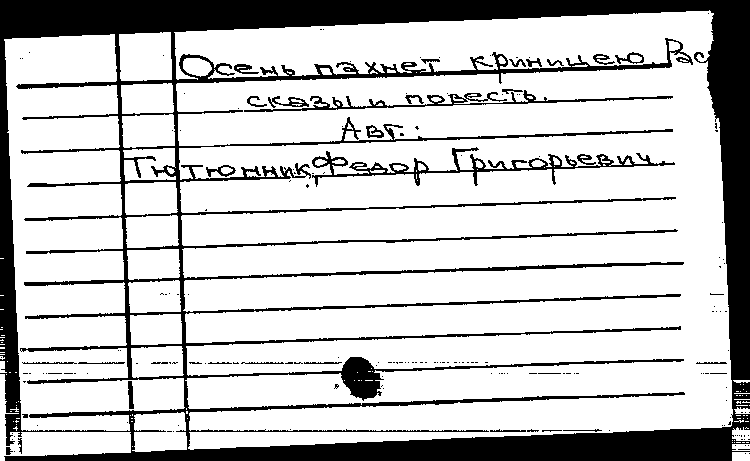 Осень пахнет криницею. Рас
сказы и повесть.
Авт.:
Тютюнник, Федор Григорьевич.